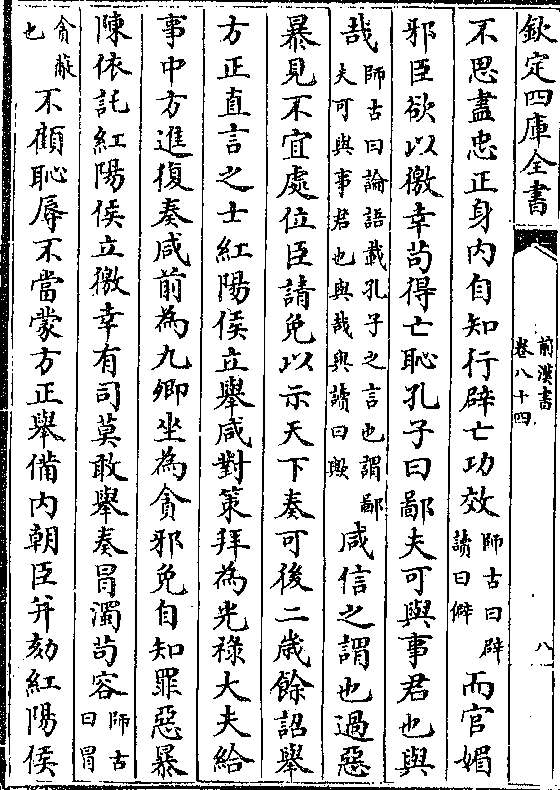 欽定四庫全書
前漢書
卷八十四
八
不思盡忠正身内自知行辟亡功效師古曰辟
讀曰僻而官媚
邪臣欲以徼幸苟得亡恥孔子曰鄙夫可與事君也與
哉師古曰論語載孔子之言也謂鄙
夫可與事君也與哉與讀曰歟咸信之謂也過惡
暴見不宜處位臣請免以示天下奏可後二歲餘詔舉
方正直言之士紅陽侯立舉咸對策拜為光祿大夫給
事中方進復奏咸前為九卿坐為貪邪免自知罪惡暴
陳依託紅陽侯立徼幸有司莫敢舉奏冒濁苟容師古
曰冒
貪蔽
也不顧恥辱不當蒙方正舉備内朝臣并劾紅陽侯